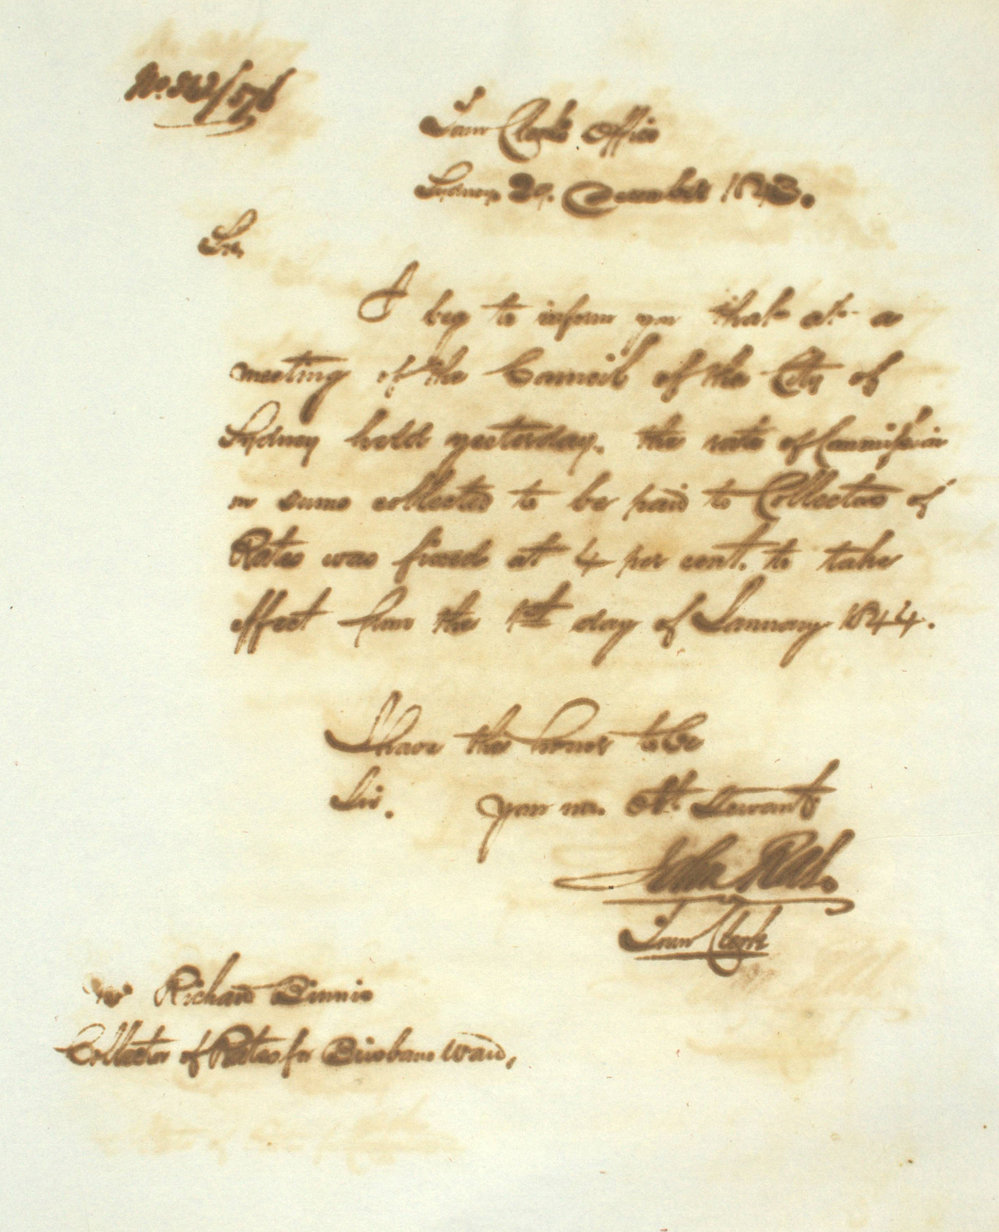 Town Clerk's Office
Sydney 29. December 1843.
Sir,
I beg to inform you that at a
meeting of the Council of the City of
Sydney held yesterday, the rate of Commission
on sums collected to be paid to Collectors of
Rates was fixed at 4 per cent. to take
effect from the 1st day of January 1844.
I have the honor to be
Sir.
Your mo. Obt. Servant
Town Clerk
Mr Richard Binnie
Collector of Rates for Brisbane Ward,